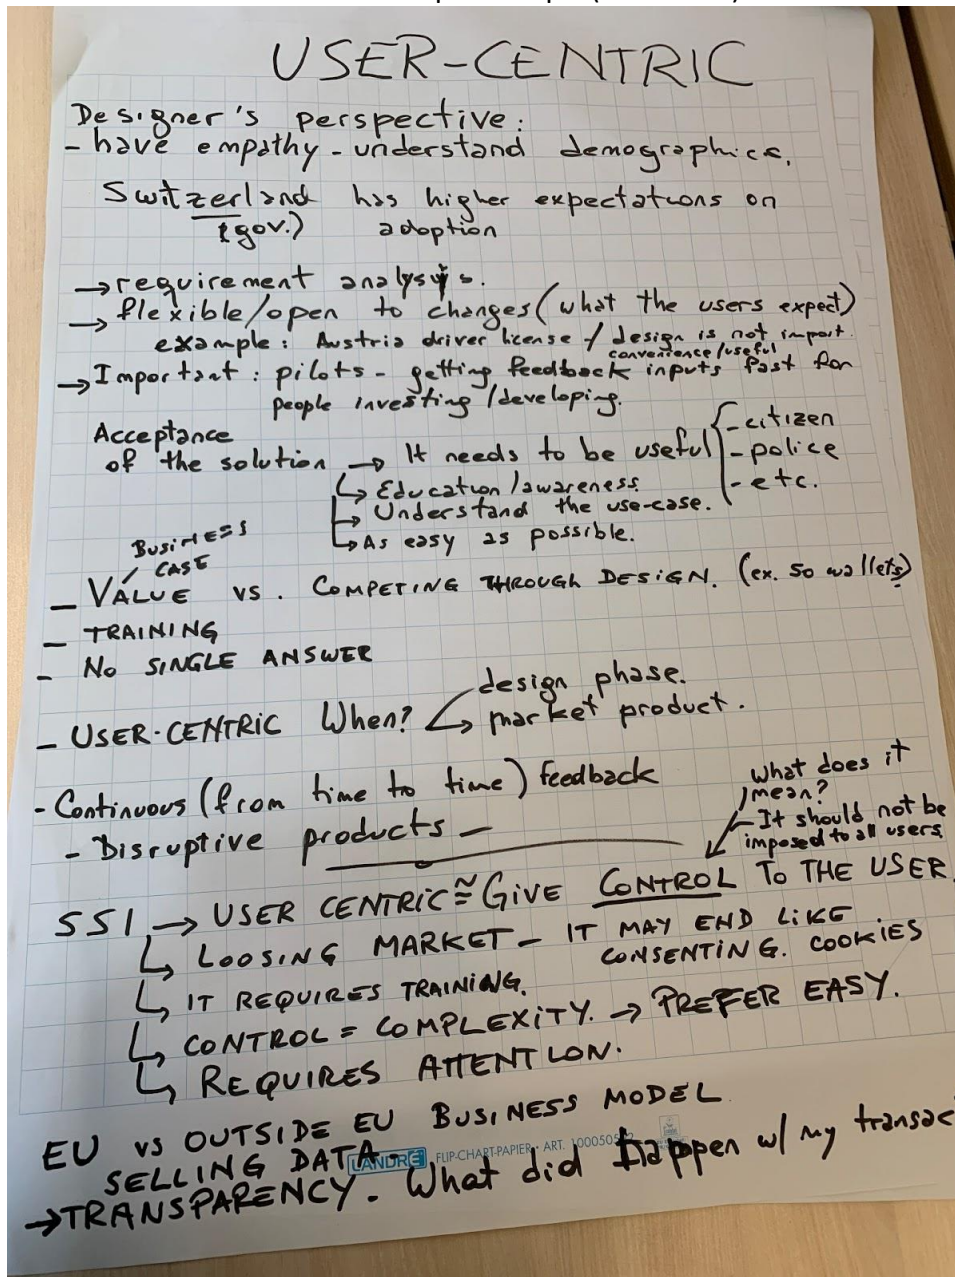 USER-CENTRIC
Designer's perspective:
- have empathy - understand demographics.
Switzerland has higher expectations on
(gov.) adoption
→ requirement analysis.
→ flexible/open to changes (what the users expect)
example: Austria driver license / design is not import.
convenience/useful
→ Important: pilots - getting feedback inputs fast for
people investing/developing.
Acceptance
of the solution → It needs to be useful
- citizen
- police
- etc.
↳ Education/awareness
↳ Understand the use-case.
↳ As easy as possible.
BUSINESS
CASE
- VALUE vs. COMPETING THROUGH DESIGN. (ex. 50 wallets)
- TRAINING
- NO SINGLE ANSWER
- USER-CENTRIC When?
design phase.
market product.
- Continuous (from time to time) feedback
- Disruptive products -
What does it
mean?
- It should not be
imposed to all users
SSI → USER CENTRIC ≅ GIVE CONTROL TO THE USER
↳ LOOSING MARKET - IT MAY END LIKE
CONSENTING. COOKIES
↳ IT REQUIRES TRAINING.
↳ CONTROL = COMPLEXITY. → PREFER EASY.
↳ REQUIRES ATTENTION.
EU vs OUTSIDE EU BUSINESS MODEL
SELLING DATA -
LANDRÉ FLIP-CHART-PAPIER • ART. 100050
→ TRANSPARENCY. What did happen w/ my transac